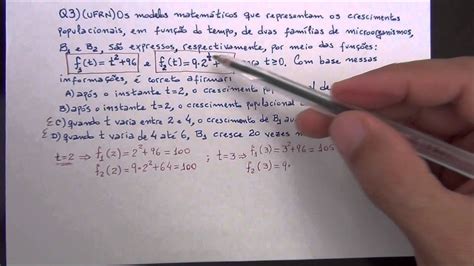 Q3) (UFRN) Os modelos matemáticos que representam os crescimentos
populacionais, em função do tempo, de duas famílias de microorganismos,
B₁ e B₂, são expressos, respectivamente, por meio das funções:
f₁(t) = t² + 96 e f₂(t) = 9·2ᵗ + para t≥0. Com base nessas
informações, é correto afirmar:
A) após o instante t=2, o crescimento popul
após o instante t=2, o crescimento po
C) quando t varia entre 2 e 4, o crescimento de B₁ au
D) quando t varia de 4 até 6, B₁ cresce 20 vezes m
t=2 ⇒ f₁(2) = 2² + 96 = 100 ; t=3 ⇒ f₁(3) = 3² + 96 = 105
f₂(2) = 9·2² + 64 = 100 f₂(3) = 9·